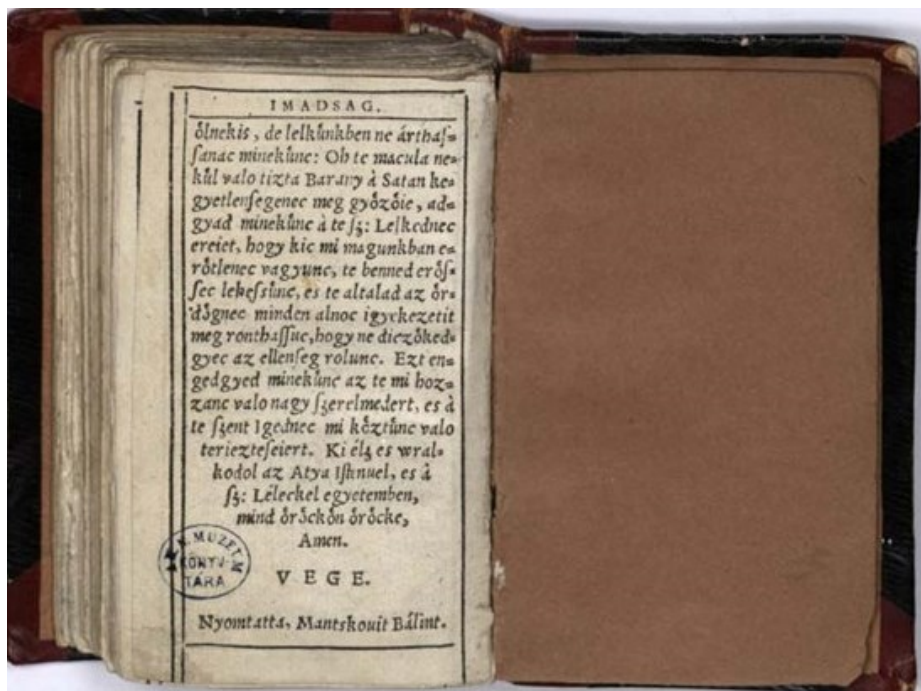 IMADSAG.
ölnekis, de lelkünkben ne árthaſ⸗
ſanac minekünc: Oh te macula ne⸗
kül valo tizta Barany à Satan ke⸗
gyetlenſegenec meg gyözöie, ad⸗
gyad minekünc à te ſz: Lelkednec
ereiet, hogy kic mi magunkban e⸗
rötlenec vagyunc, te benned eröſ⸗
ſec leheſsünc, es te altalad az ör⸗
dögnec minden alnoc igyekezetit
meg ronthaſſuc, hogy ne diczöked⸗
gyec az ellenſeg rolunc. Ezt en⸗
gedgyed minekünc az te mi hoz⸗
zanc valo nagy ſzerelmedert, es à
te ſzent Igednec mi köztünc valo
teriezteſeiert. Ki élz es wral⸗
kodol az Atya Iſtnuel, es à
ſz: Léleckel egyetemben,
mind öröckön öröcke,
Amen.
VEGE.
Nyomtatta, Mantskouit Bálint.
MUZEUM
KÖNYV
TÁRA